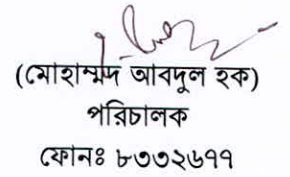 (মোহাম্মদ আবদুল হক)
পরিচালক
ফোনঃ ৮৩৩২৬৭৭